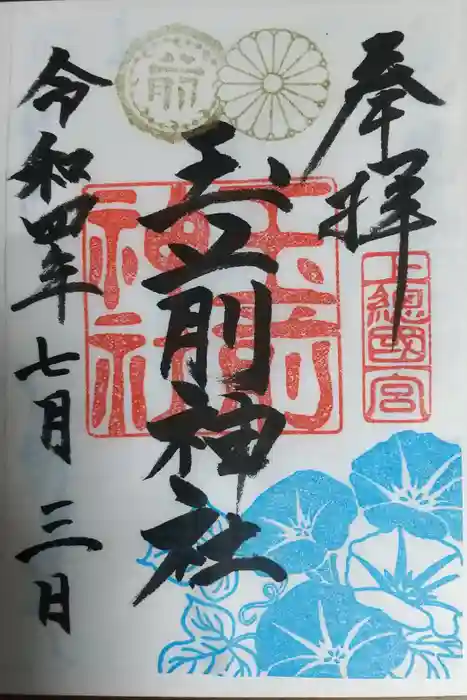 奉拝
上總國一宮
玉前神社
玉前神社
前
令和四年
七月
三日